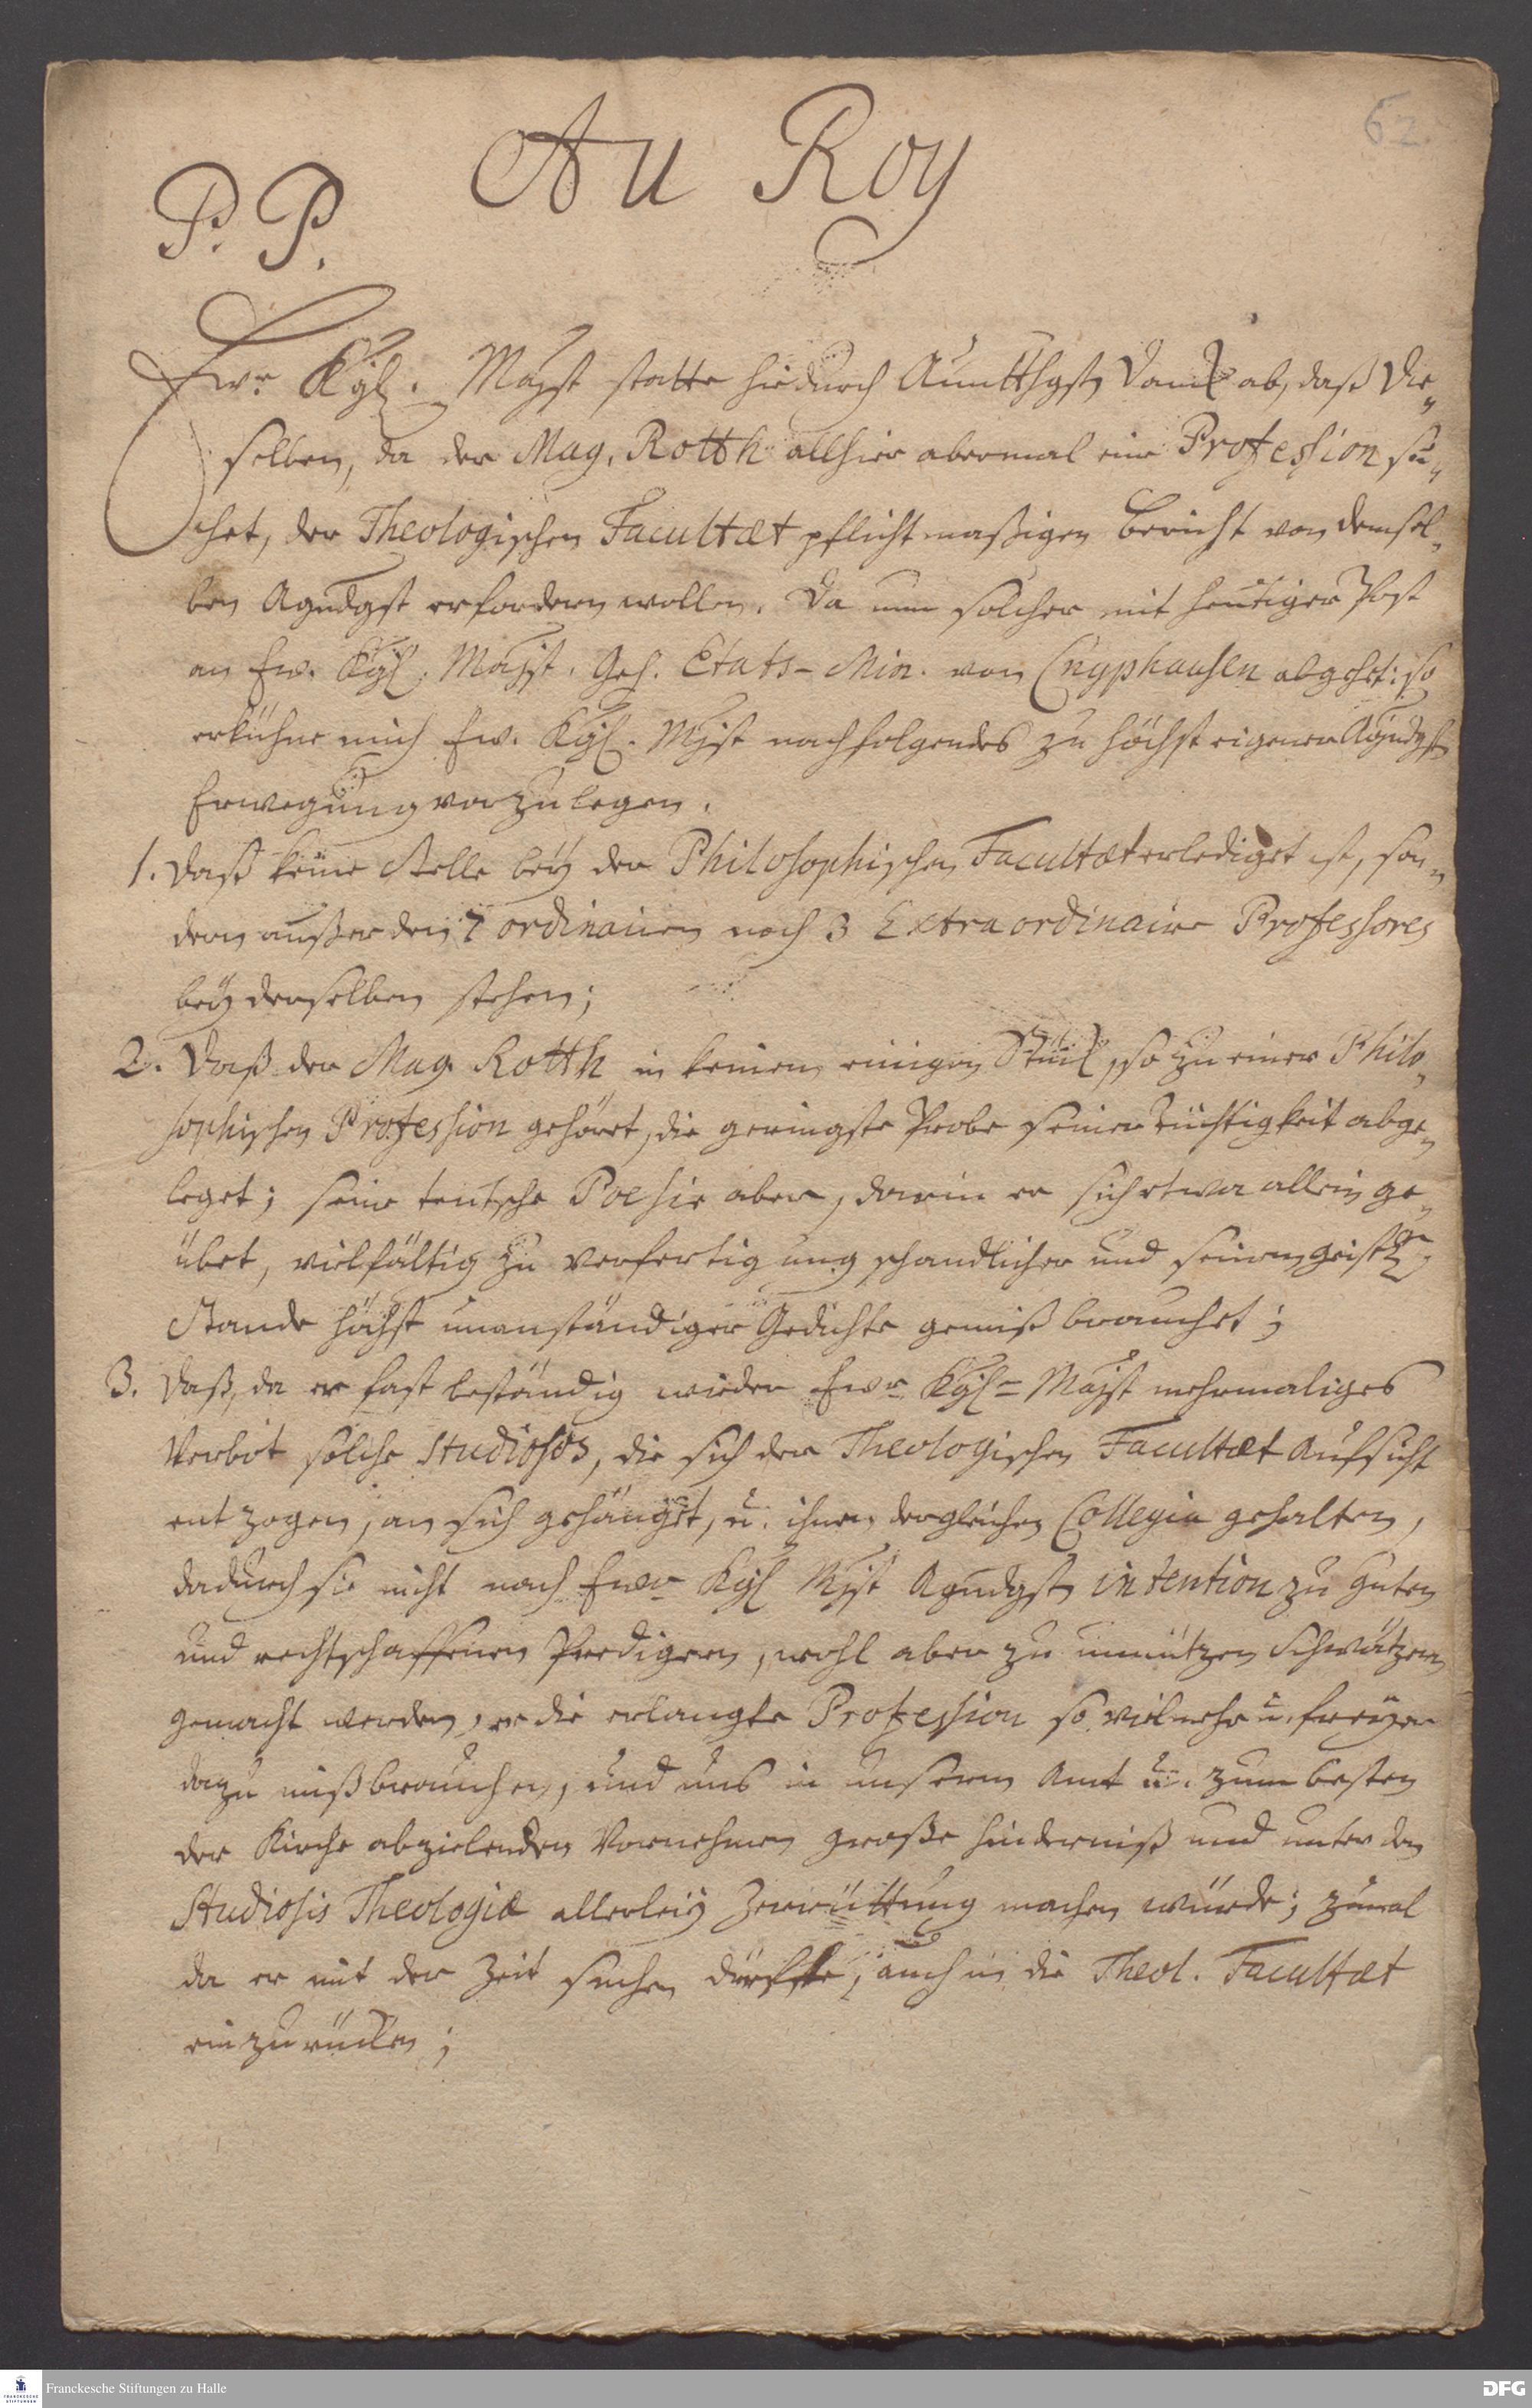 62
Au Roy
P. P.
Ewr Kgl. Majst statte hiedurch Auntthgst Danck ab, daß Die-
selben, da der Mag. Rotth allhier abermal eine Profession su-
chet, der Theologischen Facultæt pflichtmaßigen Bericht von demsel-
ben Agndgst erfordern wollen. Da nun solcher mit heutiger Post
an Ew. Kgl. Majst. Geh. Etats-Min. von Cnyphausen abgehet: so
erkühne mich Ew. Kgl. Mjst nachfolgendes zu höchst eigener Agndgstn
Erwegung vorzulegen.
1. Daß keine Stelle bey der Philosophischen Facultæt erlediget ist, son-
dern außer den 7 ordinairen noch 3 Extraordinaire Professores
bey derselben stehen;
2. Daß der Mag. Rotth in keinem einigen Stück, so zu einer Philo-
sophischen Profession gehöret, die geringste Probe seiner Tüchtigkeit abge-
leget; seine teutsche Poesie aber, darin er sich etwa allein ge-
übet, vielfältig zu verfertigung schandlicher und seinem geistl.
Stande höchst unanständiger Gedichte gemißbrauchet;
3. Daß, da er fast beständig wieder Ewr Kgl- Majst mehrmaliges
Verbot solche Studiosos, die sich der Theologischen Facultæt Aufsicht
entzogen, an sich gehänget, u. ihnen dergleichen Collegia gehalten,
dadurch sie nicht nach Ewr Kgl Mjst Agndgstn intention zu guten
und rechtschaffenen Predigern, wohl aber zu unnützen Schwätzern
gemacht werden, er die erlangte Profession so vielmehr u. freyer
dazu mißbrauchen, und uns in unserm Amt u. zum besten
der Kirche abzielenden Vornehmen große Hinderniß und unter den
Studiosis Theologiæ allerley Zerrüttung machen würde; zumal
da er mit der Zeit suchen dürffte, auch in die Theol. Facultæt
einzurücken;
Franckesche Stiftungen zu Halle
DFG